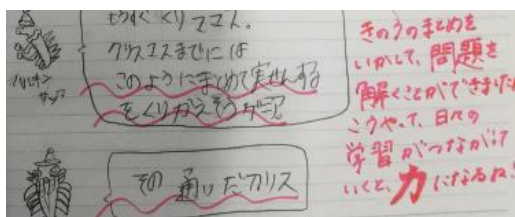 もうすぐくリスマス。
クリスマスまでには
このようにまとめて実せんする
をくりかえそうゲニア
その通りだクリス
きのうのまとめを
いかして、問題を
解くことができました
こうやって、日々の
学習がつながって
いくと、力になるね!